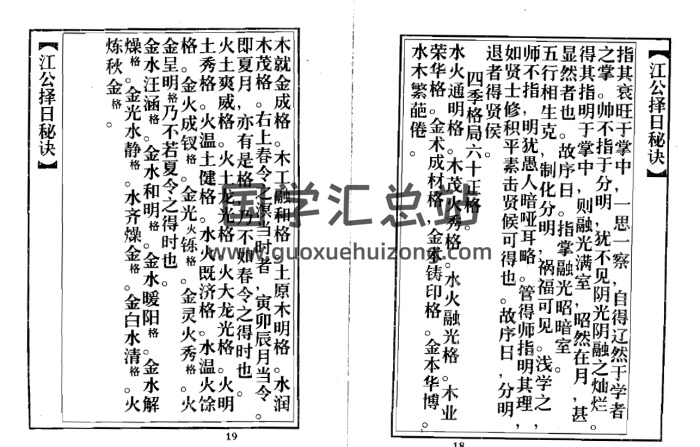 【江公择日秘诀】
指其衰旺于掌中，一思一察，自得辽然于学者
之掌。师不指于分明，犹不见阴光阴融之灿烂。
得其指明于掌中，则融光满室，昭然在月，甚
显然者也。故序日。指掌融光昭暗室。
五行相生克，制化分明，祸福可见。浅学之，
师不指，明犹愚人暗哑耳略。管得师指明其理，
如贤士修积平素击贤候可得也。故序日，分明，
退者得贤侯。
四季格局六十正格。
水火通明格。木茂火秀格。水火融光格。木业
荣华格。金术成材格，金木铸印格。金本华博。
水木繁葩倦。
18
木就金成格。木工融和格。土原木明格。水润
木茂格。右上春令之深当时者，寅卯辰月当令。
即夏月，亦有是格，乃不如春令之得时也。
火土爽威格。火土龙光格。火大龙光格。火明
土秀格。火温土健格。水火既济格。水温火馀
格。金火成钗格。金光火铄格。金灵火秀格。火
金呈明格乃不若夏令之得时也。
金水汪涵格。金水和明格。金水暖阳格。金水解
燥格。金光水静格。水齐燥金格。金白水清格。火
炼秋金格。
【江公择日秘诀】
19
国学汇总站
www.guoxuehuizong.com